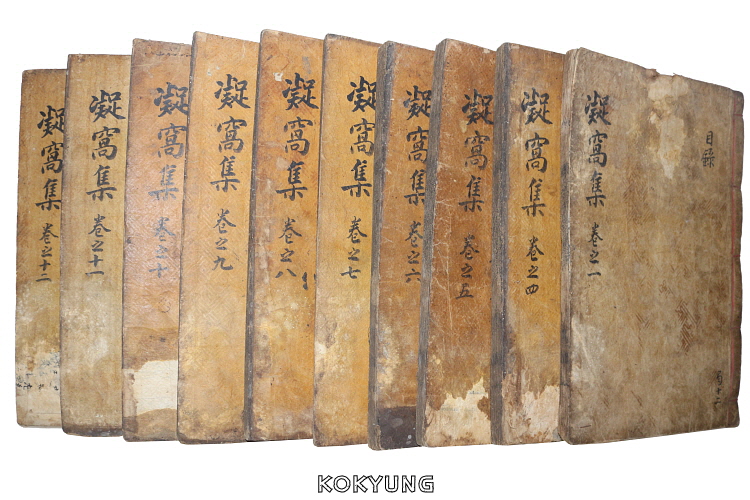 凝窩集 卷之一
目錄
共十二
凝窩集 卷之四
凝窩集 卷之五
凝窩集 卷之六
凝窩集 卷之七
凝窩集 卷之八
凝窩集 卷之九
凝窩集 卷之十
凝窩集 卷之十一
凝窩集 卷之十二
KOKYUNG